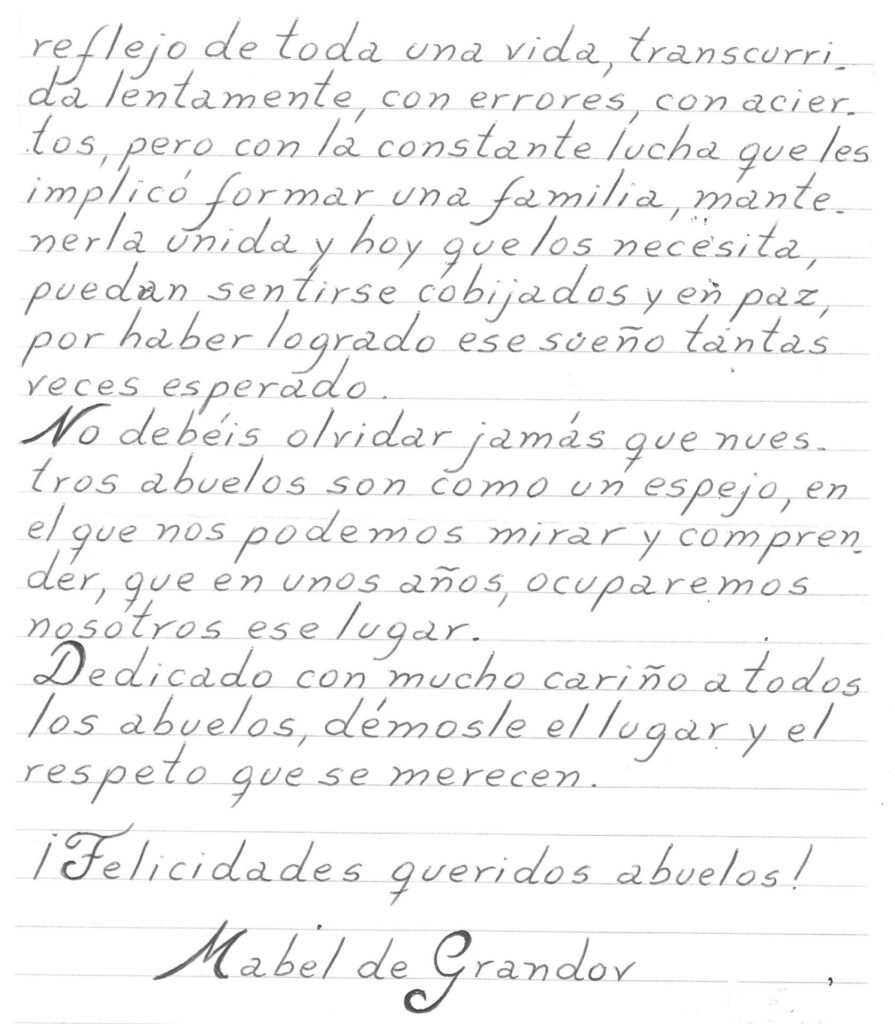 reflejo de toda una vida, transcurri-
da lentamente, con errores, con acier-
tos, pero con la constante lucha que les
implicó formar una familia, mante-
nerla unida y hoy que los necesita,
puedan sentirse cobijados y en paz,
por haber logrado ese sueño tantas
veces esperado.
No debéis olvidar jamás que nues-
tros abuelos son como un espejo, en
el que nos podemos mirar y compren-
der, que en unos años, ocuparemos
nosotros ese lugar.
Dedicado con mucho cariño a todos
los abuelos, démosle el lugar y el
respeto que se merecen.
¡Felicidades queridos abuelos!
Mabel de Grandov